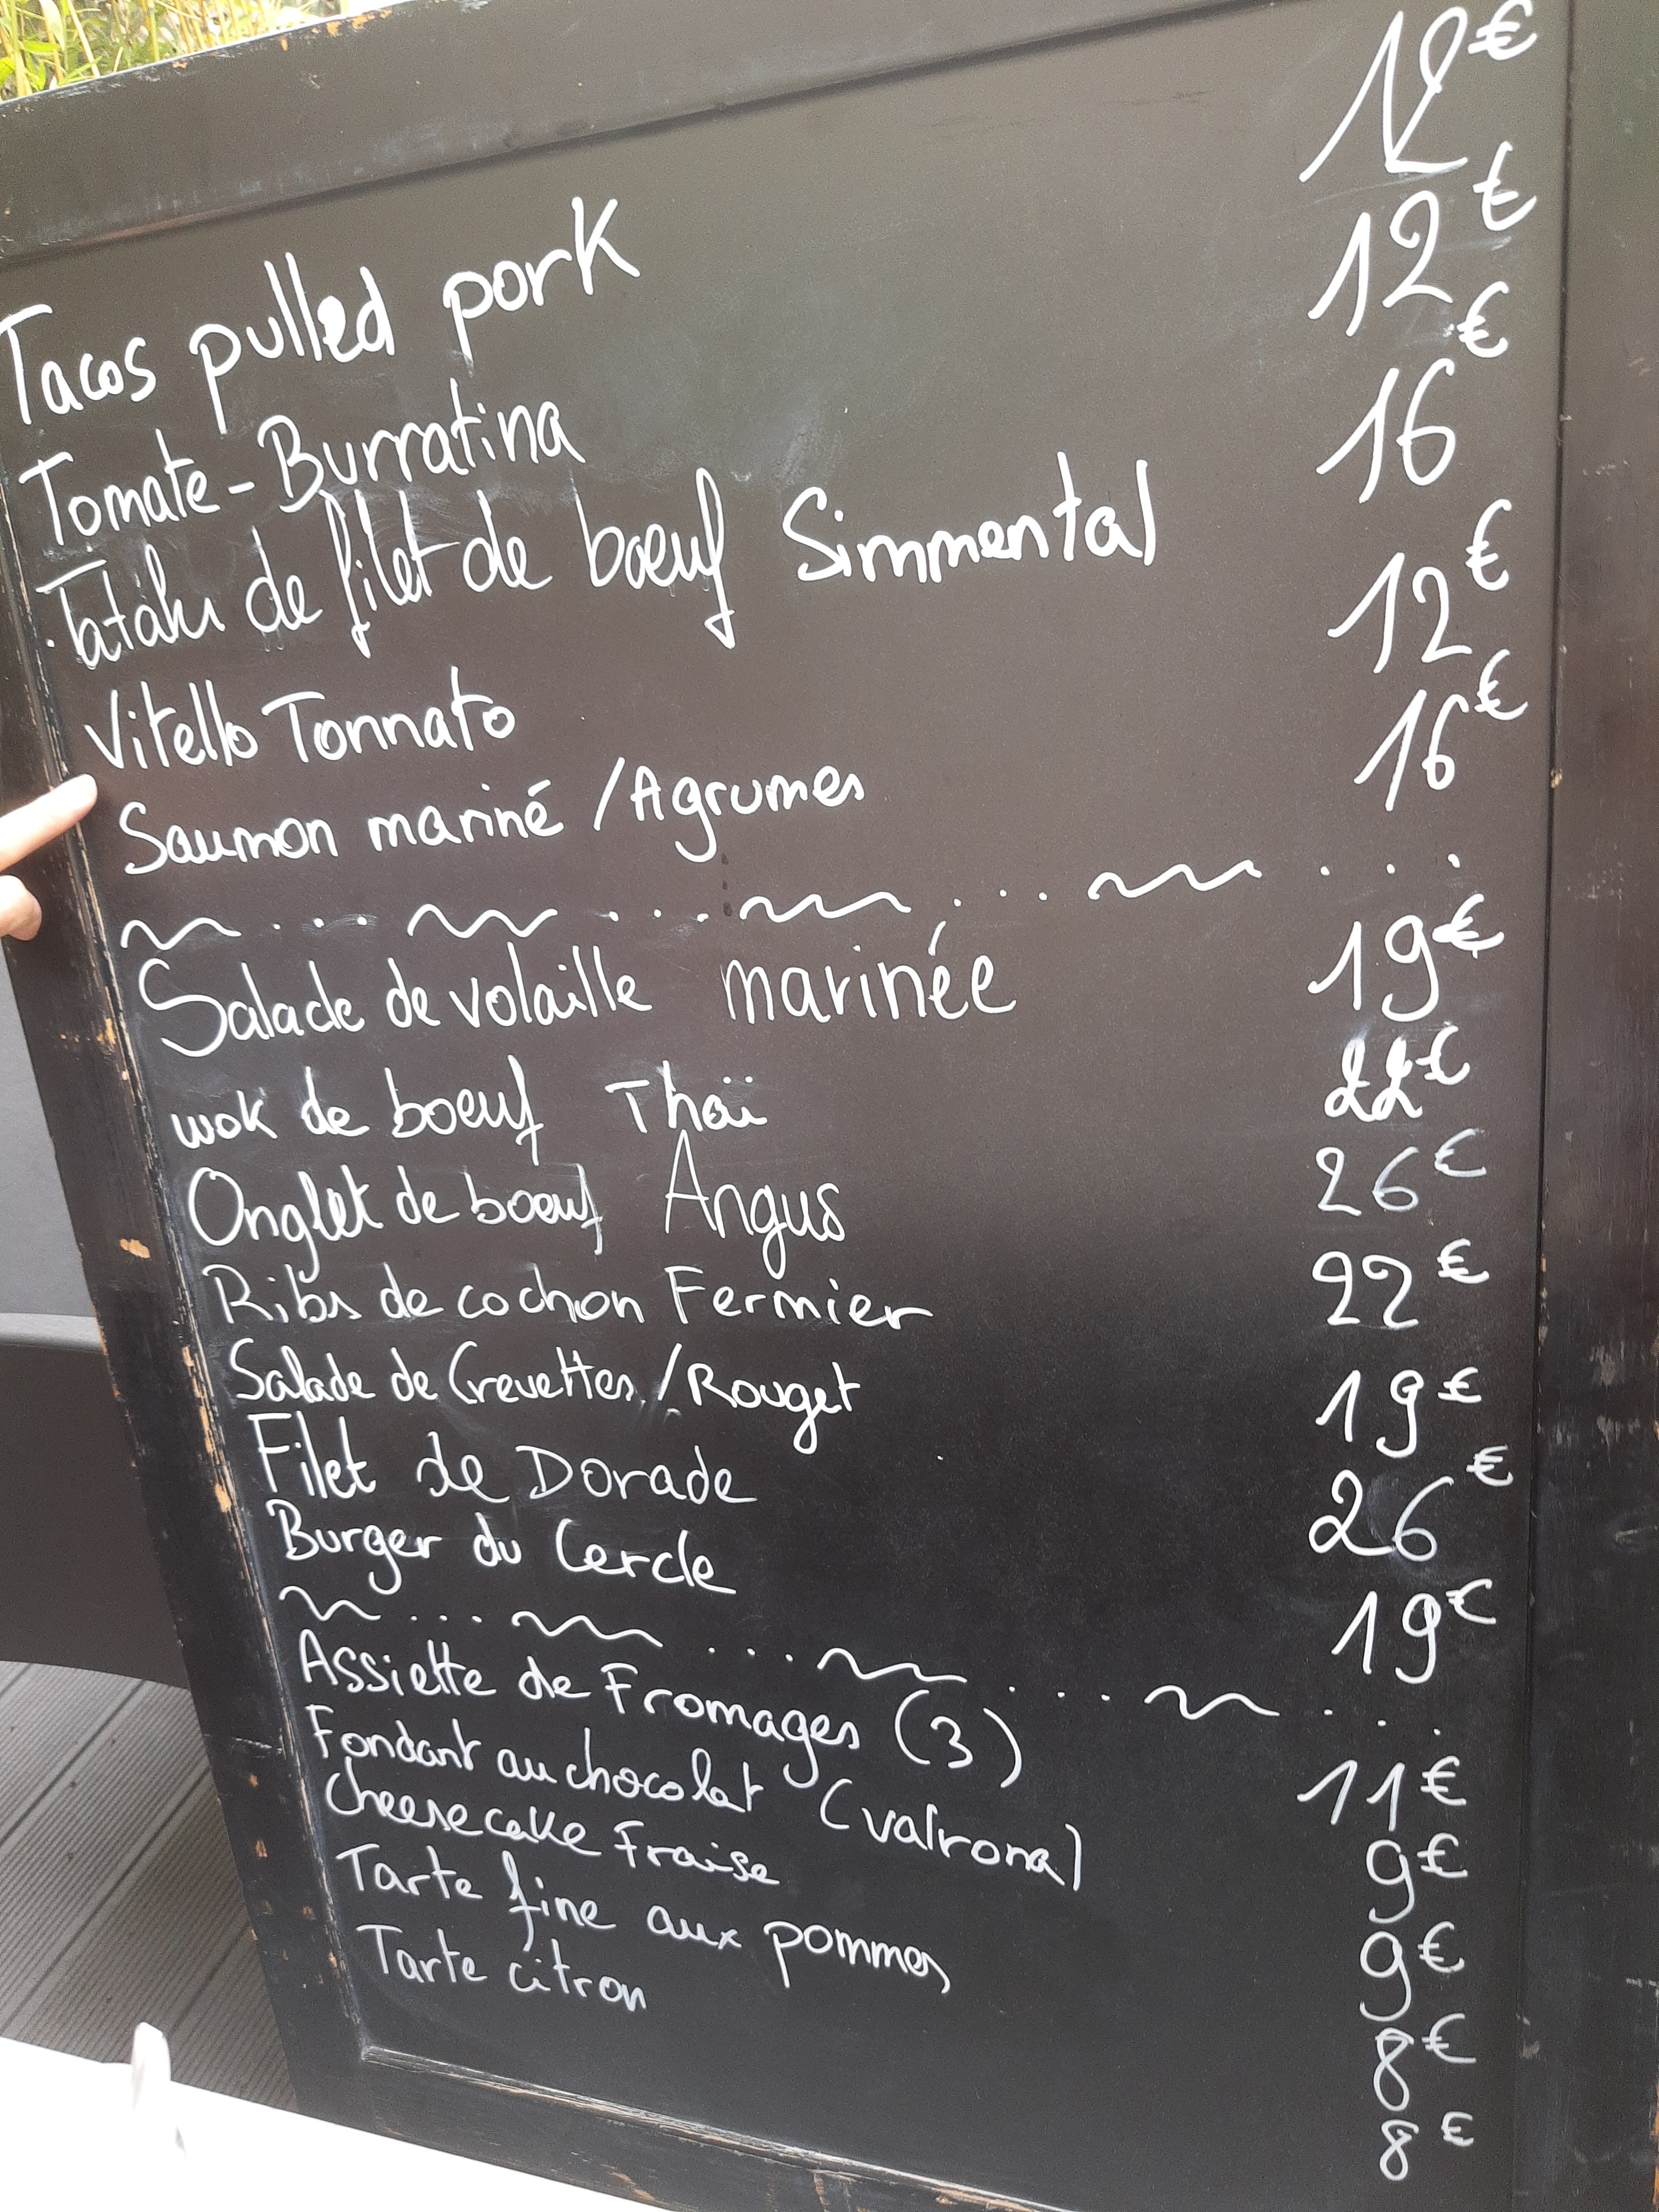 Tacos pulled pork 12€
Tomate-Burratina 12€
Tataki de filet de boeuf Simmental 16€
Vitello Tonnato 12€
Saumon mariné / Agrumes 16€
Salade de volaille marinée 19€
wok de boeuf Thaï 22€
Onglet de boeuf Angus 26€
Ribs de cochon Fermier 22€
Salade de Crevettes / Rouget 19€
Filet de Dorade 26€
Burger du Cercle 19€
Assiette de Fromages (3) 11€
Fondant au chocolat (valrona) 9€
Cheese cake Fraise 9€
Tarte fine aux pommes 8€
Tarte citron 8€